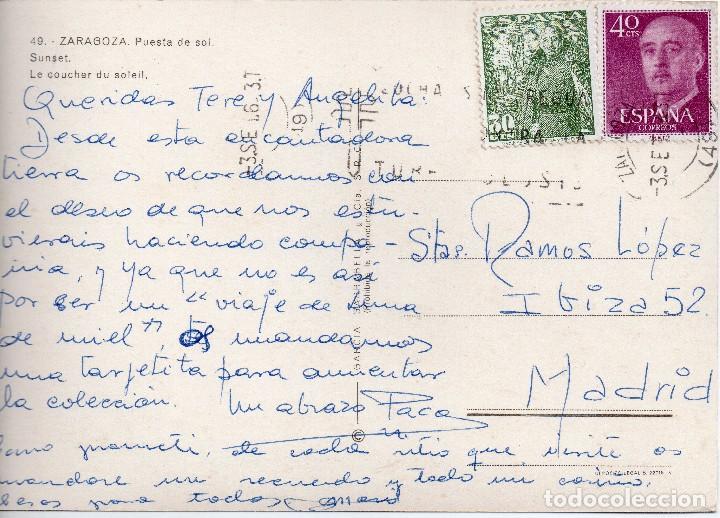 49. - ZARAGOZA. Puesta de sol.
Sunset.
Le coucher du soleil.
Queridas Tere y Angelita:
Desde esta encantadora
tierra os recordamos con
el deseo de que nos estu-
vierais haciendo compa-
ñia, y ya que no es así
por ser un "viaje de luna
de miel", os mandamos
una tarjetita para aumentar
la colección. Un abrazo Paca
prometí, de cada sitio que visite os
mandare un recuerdo y todo un cariño.
besos para todos
Stas. Ramos López
Ibiza 52.
Madrid
GARCIA GARRABELLA
(Prohibida la reproducción)
40 CTS
ESPAÑA
CORREOS
3.SE